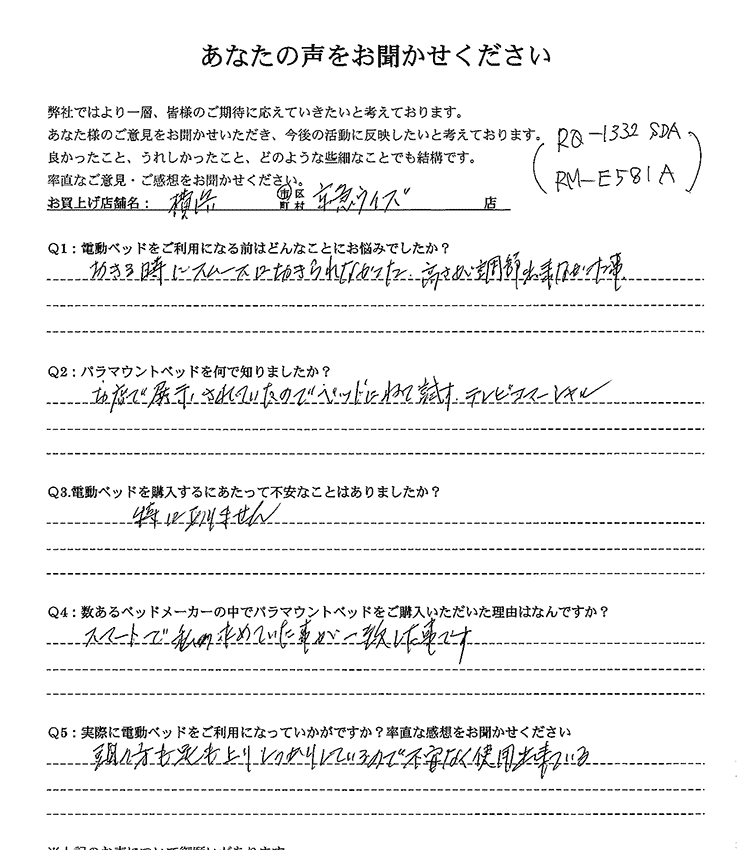 あなたの声をお聞かせください
弊社ではより一層、皆様のご期待に応えていきたいと考えております。
あなた様のご意見をお聞かせいただき、今後の活動に反映したいと考えております。
良かったこと、うれしかったこと、どのような些細なことでも結構です。
率直なご意見・ご感想をお聞かせください。
(RQ-1332 SDA
RM-E581A)
お買上げ店舗名: 横浜 市区町村 京急ウイズ 店
Q1:電動ベッドをご利用になる前はどんなことにお悩みでしたか?
起きる時にスムースに起きられなかった、高さが調節出来なかった事
Q2:パラマウントベッドを何で知りましたか?
お店で展示されていたのでベッドにねて試す、テレビコマーシャル
Q3.電動ベッドを購入するにあたって不安なことはありましたか?
特に有りません
Q4:数あるベッドメーカーの中でパラマウントベッドをご購入いただいた理由はなんですか?
スマートで私の求めていた事が一致した事です
Q5:実際に電動ベッドをご利用になっていかがですか?率直な感想をお聞かせください
頭の方も足も上りしっかりしているので不安なく使用出来ている